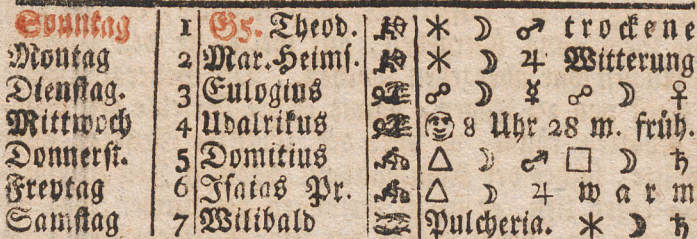 Sonntag 1 G5. Theod. ⚹ ☽ ♂ trockene
Montag 2 Mar. Heims. ⚹ ☽ ♃ Witterung
Dienstag. 3 Eulogius ☍ ☽ ☿ ☍ ☽ ♀
Mittwoch 4 Udalrikus 8 Uhr 28 m. früh.
Donnerst. 5 Domitius △ ☽ ♂ □ ☽ ♄
Freytag 6 Isaias Pr. △ ☽ ♃ warm
Samstag 7 Wilibald Pulcheria. ⚹ ☽ ♄